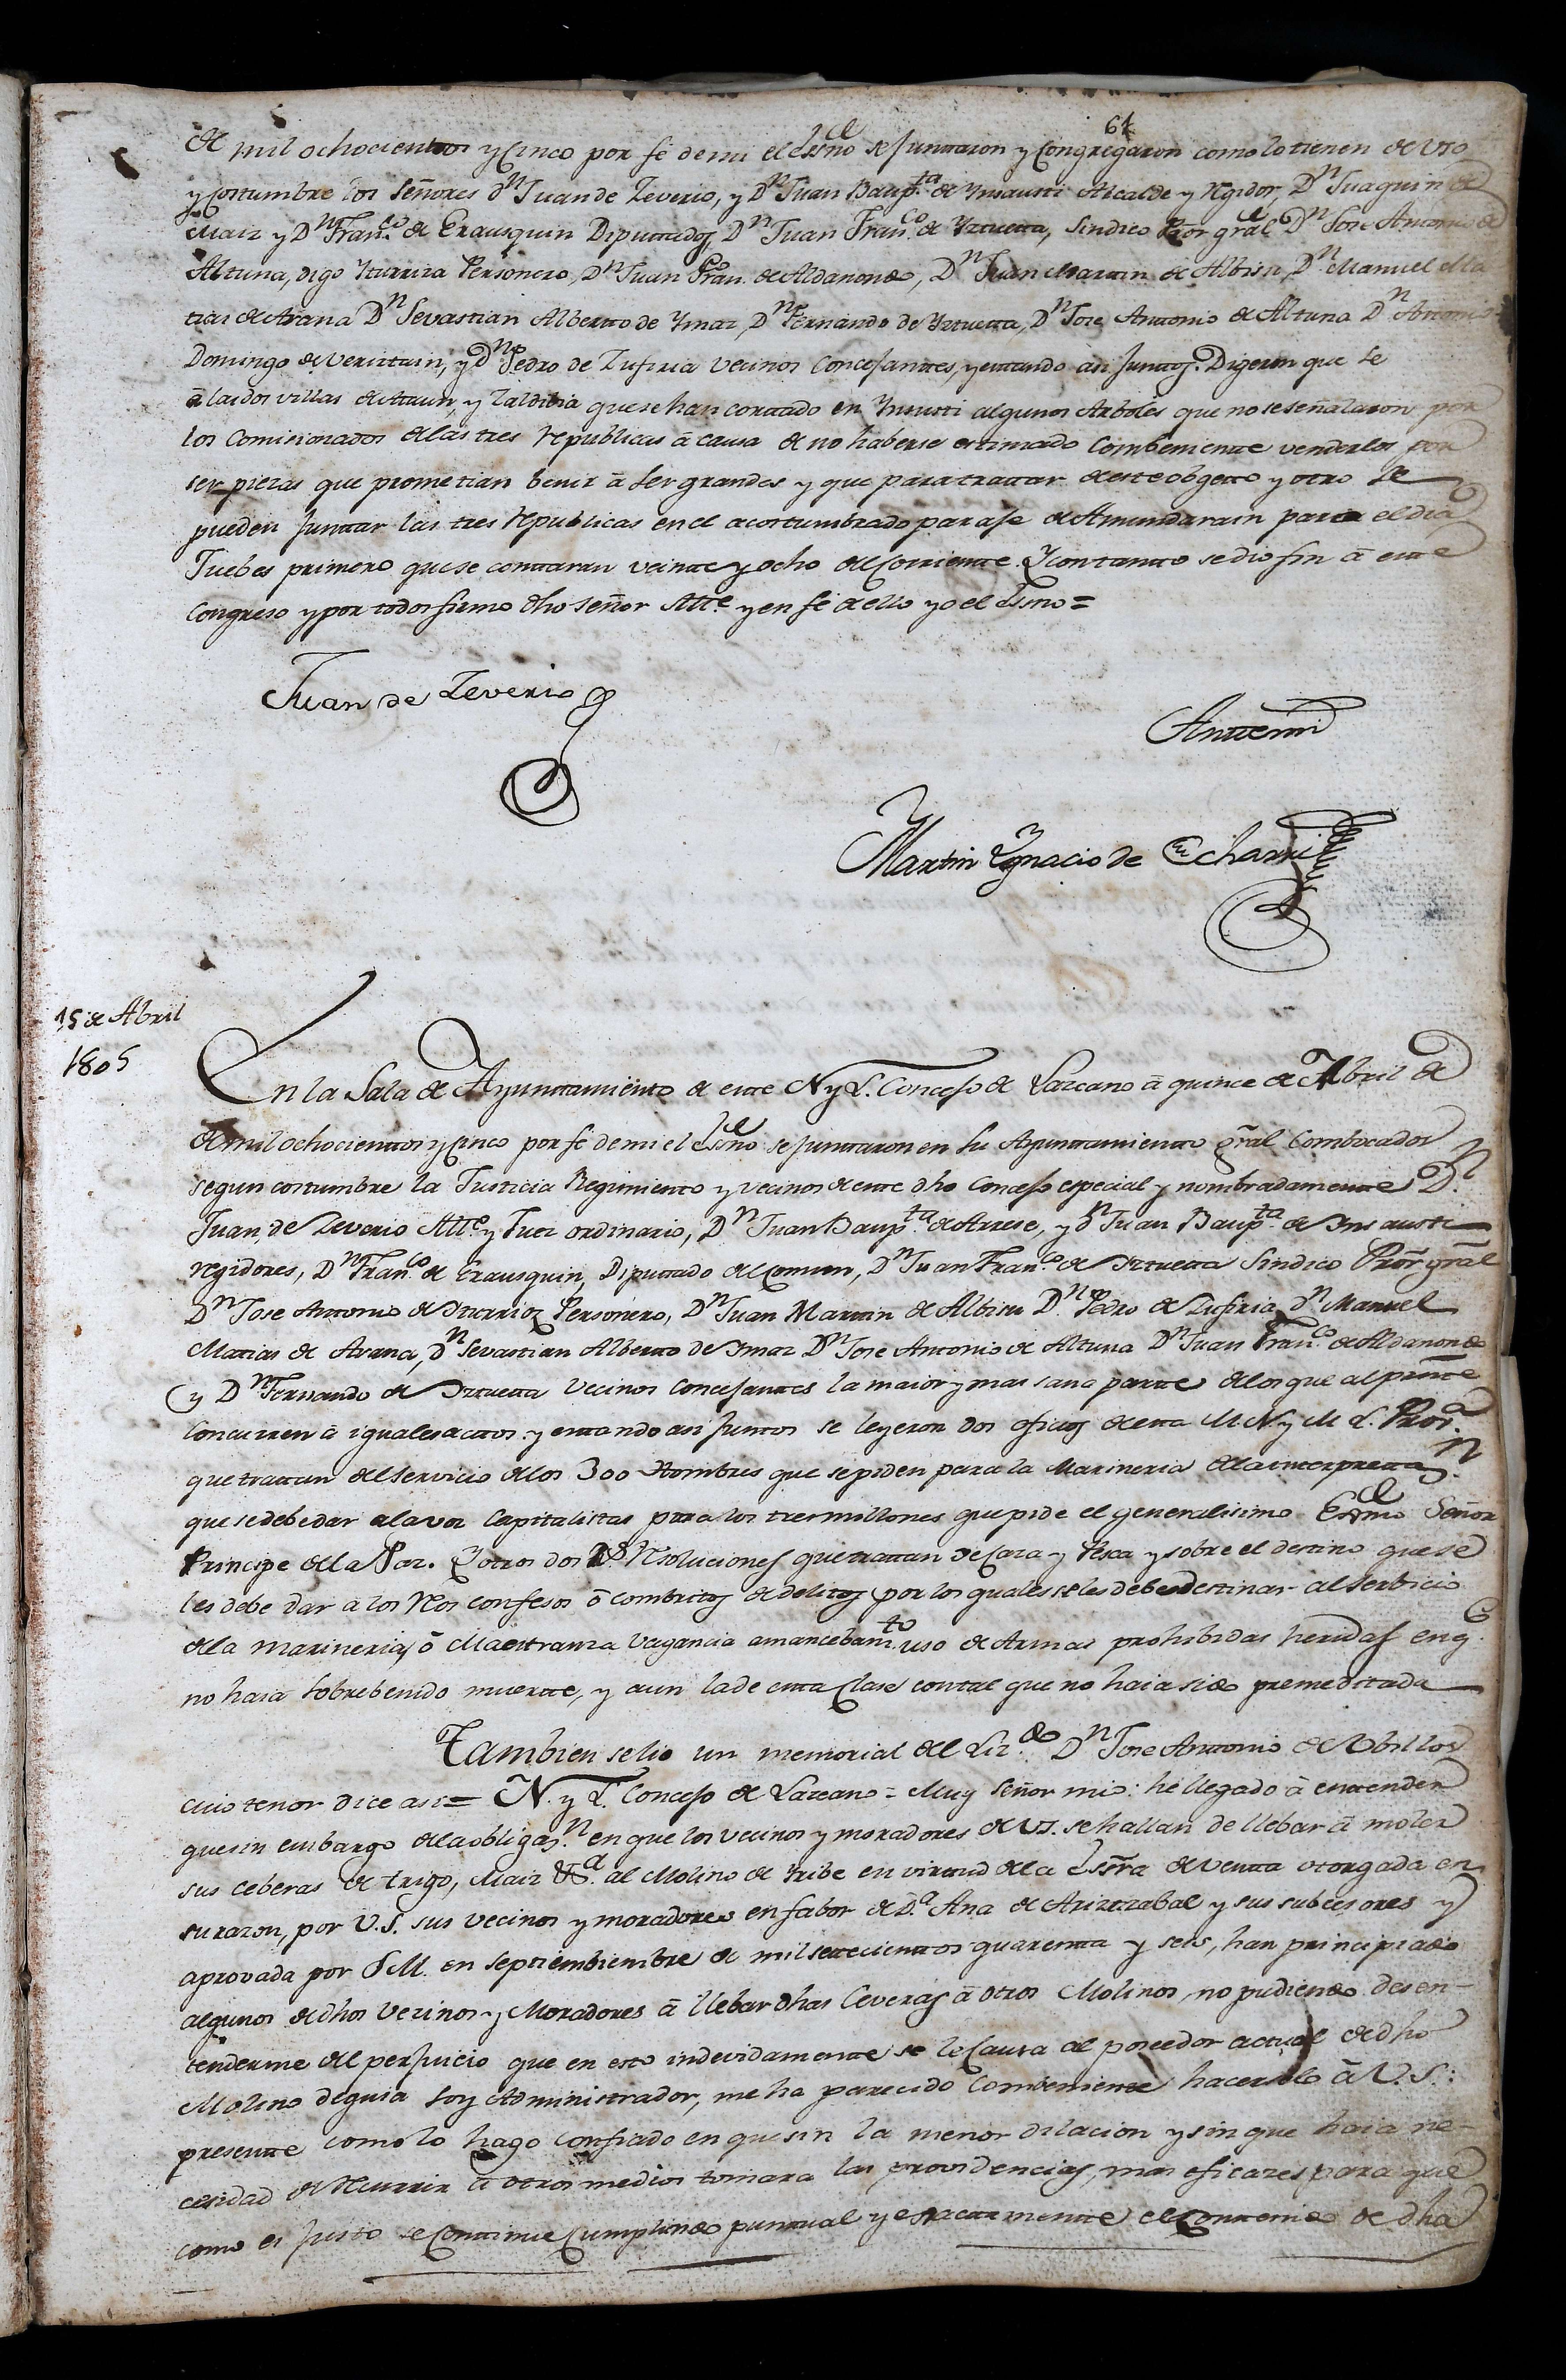 61
de mil ochocientos y Cinco por fé de mi el Essno se Junttaron y Congregaron como lo tienen de Uso
y costumbre los Señores dn Juan de Zeverio, y Dn Juan Baupta de Ynsausti Alcalde y Regidor, Dn Juaquin de
Maiz y Dn Franco de Erausquin Diputtados, Dn Juan Franco de Yztuetta, Sindico Pror gral Dn Jose Antonio de
Altuna, digo Yturrioz Personero, Dn Juan Franco de Aldanondo, Dn Juan Martin de Albisu, Dn Manuel Ma
tias de Arana Dn Sevastian Alberto de Ymaz, Dn Fernando de Yztuetta, Dn Jose Anttonio de Altuna Dn Antonio
Domingo de Veristain, y dn Pedro de Zufiria vecinos Concejanttes, y esttando asi Junttos. Digeron que se
â las dos villas de Ataun, y Zaldibia que se han corttado en Ynsusti algunos Arboles que no se señalaron por
los Comisionados de las tres republicas â causa de no haberse estimado Combeniente venderlos por
ser piezas que prometian benir â ser grandes y que para trattar de este obgetto y otro se
pueden Junttar las tres republicas en el acostumbrado paraje de Amundarain para el dia
Juebes primero que se conttaran veintte y ocho del Corriente. Y con tantto se dio fin â este
Congreso y por todos firmo dho señor Alle y en fé de ello yo el Essno =
Juan de Zeverio
Antte mi
Martin Ygnacio de Echarri
15 de Abril
1805
En la Sala de Ayunttamiento de este N y L. Concejo de Lazcano â quince de Abril de
de mil ochocienttos y Cinco por fé de mi el Essno se junttaron en su Ayunttamiento gral Combocados
segun costumbre la Justicia Regimiento y vecinos de este dho Concejo especial y nombradamente Dn
Juan de Zeverio Alle y Juez ordinario, Dn Juan Baupta de Arrese, y dn Juan Baupta de Ynsausti
regidores, Dn Franco de Erausquin, Diputtado del Comun, Dn Juan Franco de Yztuetta Sindico Pror gral
Dn Jose Antonio de Yturrioz Personero, Dn Juan Martin de Albisu Dn Pedro de Zufiria Dn Manuel
Matias de Arana, Dn Sevastian Alberto de Ymaz Dn Jose Antonio de Altuna Dn Juan Franco de Aldanondo
y Dn Fernando de Yztuetta Vecinos Concejantes la maior y mas sana parte de los que al presnte
Concurren â iguales acttos y estando asi Juntos se leyeron dos oficios de esta M. N y M L. Prova
que trattan del servicio de los 300 Hombres que se piden para la Marineria de la interprettan
que se debe dar a la voz Capitalistas para los tres millones que pide el generalisimo Essmo Señor
Principe de la Paz. Y otros dos Rs Resoluciones que trattan de Caza y Pesca y sobre el destino que se
les debe dar a los Reos confesos ô combictos de delitos por los quales se les debe destinar al serbicio
de la Marineria, ô Maestranza Vagancia amancebamto uso de Armas prohibidas heridas en qe
no haia sobrebenido muerte, y aun la de esta Clase con tal que no haia sido premeditada
Tambien se lio un memorial del Lizdo Dn Jose Anttonio de
cuio tenor dice asi = N. y L. Concejo de Lazcano = Muy Señor mio: he llegado â entender
que sin embargo de la obligazn en que los vecinos y moradores de VS. se hallan de llebar â moler
sus ceberas de trigo, Maiz &a al Molino de Yribe en virtud de la Essra de Ventta otorgada en
su razon, por V.S. sus vecinos y moradores en fabor de Da Ana de Arizttzabal y sus subcesores y
aprovada por S M. en Septiembiembre de mil settecienttos quarentta y seis, han principiado
algunos de dhos Vecinos y Moradores â llebar dhas Ceveras â otros Molinos, no pudiendo desen-
tenderme del perjuicio que en esto indevidamente se le Causa al poseedor actual de dho
Molino de quia soy Administrador, me ha parecido Combeniente hacerselo â V. S.:
presentte como lo hago confiado en que sin la menor dilacion y sin que haia ne-
cesidad de recurrir â otros medios tomara las providencias, mas eficazes para que
como es justo se Continue Cumpliendo puntual y esactamente el Contenido de dha